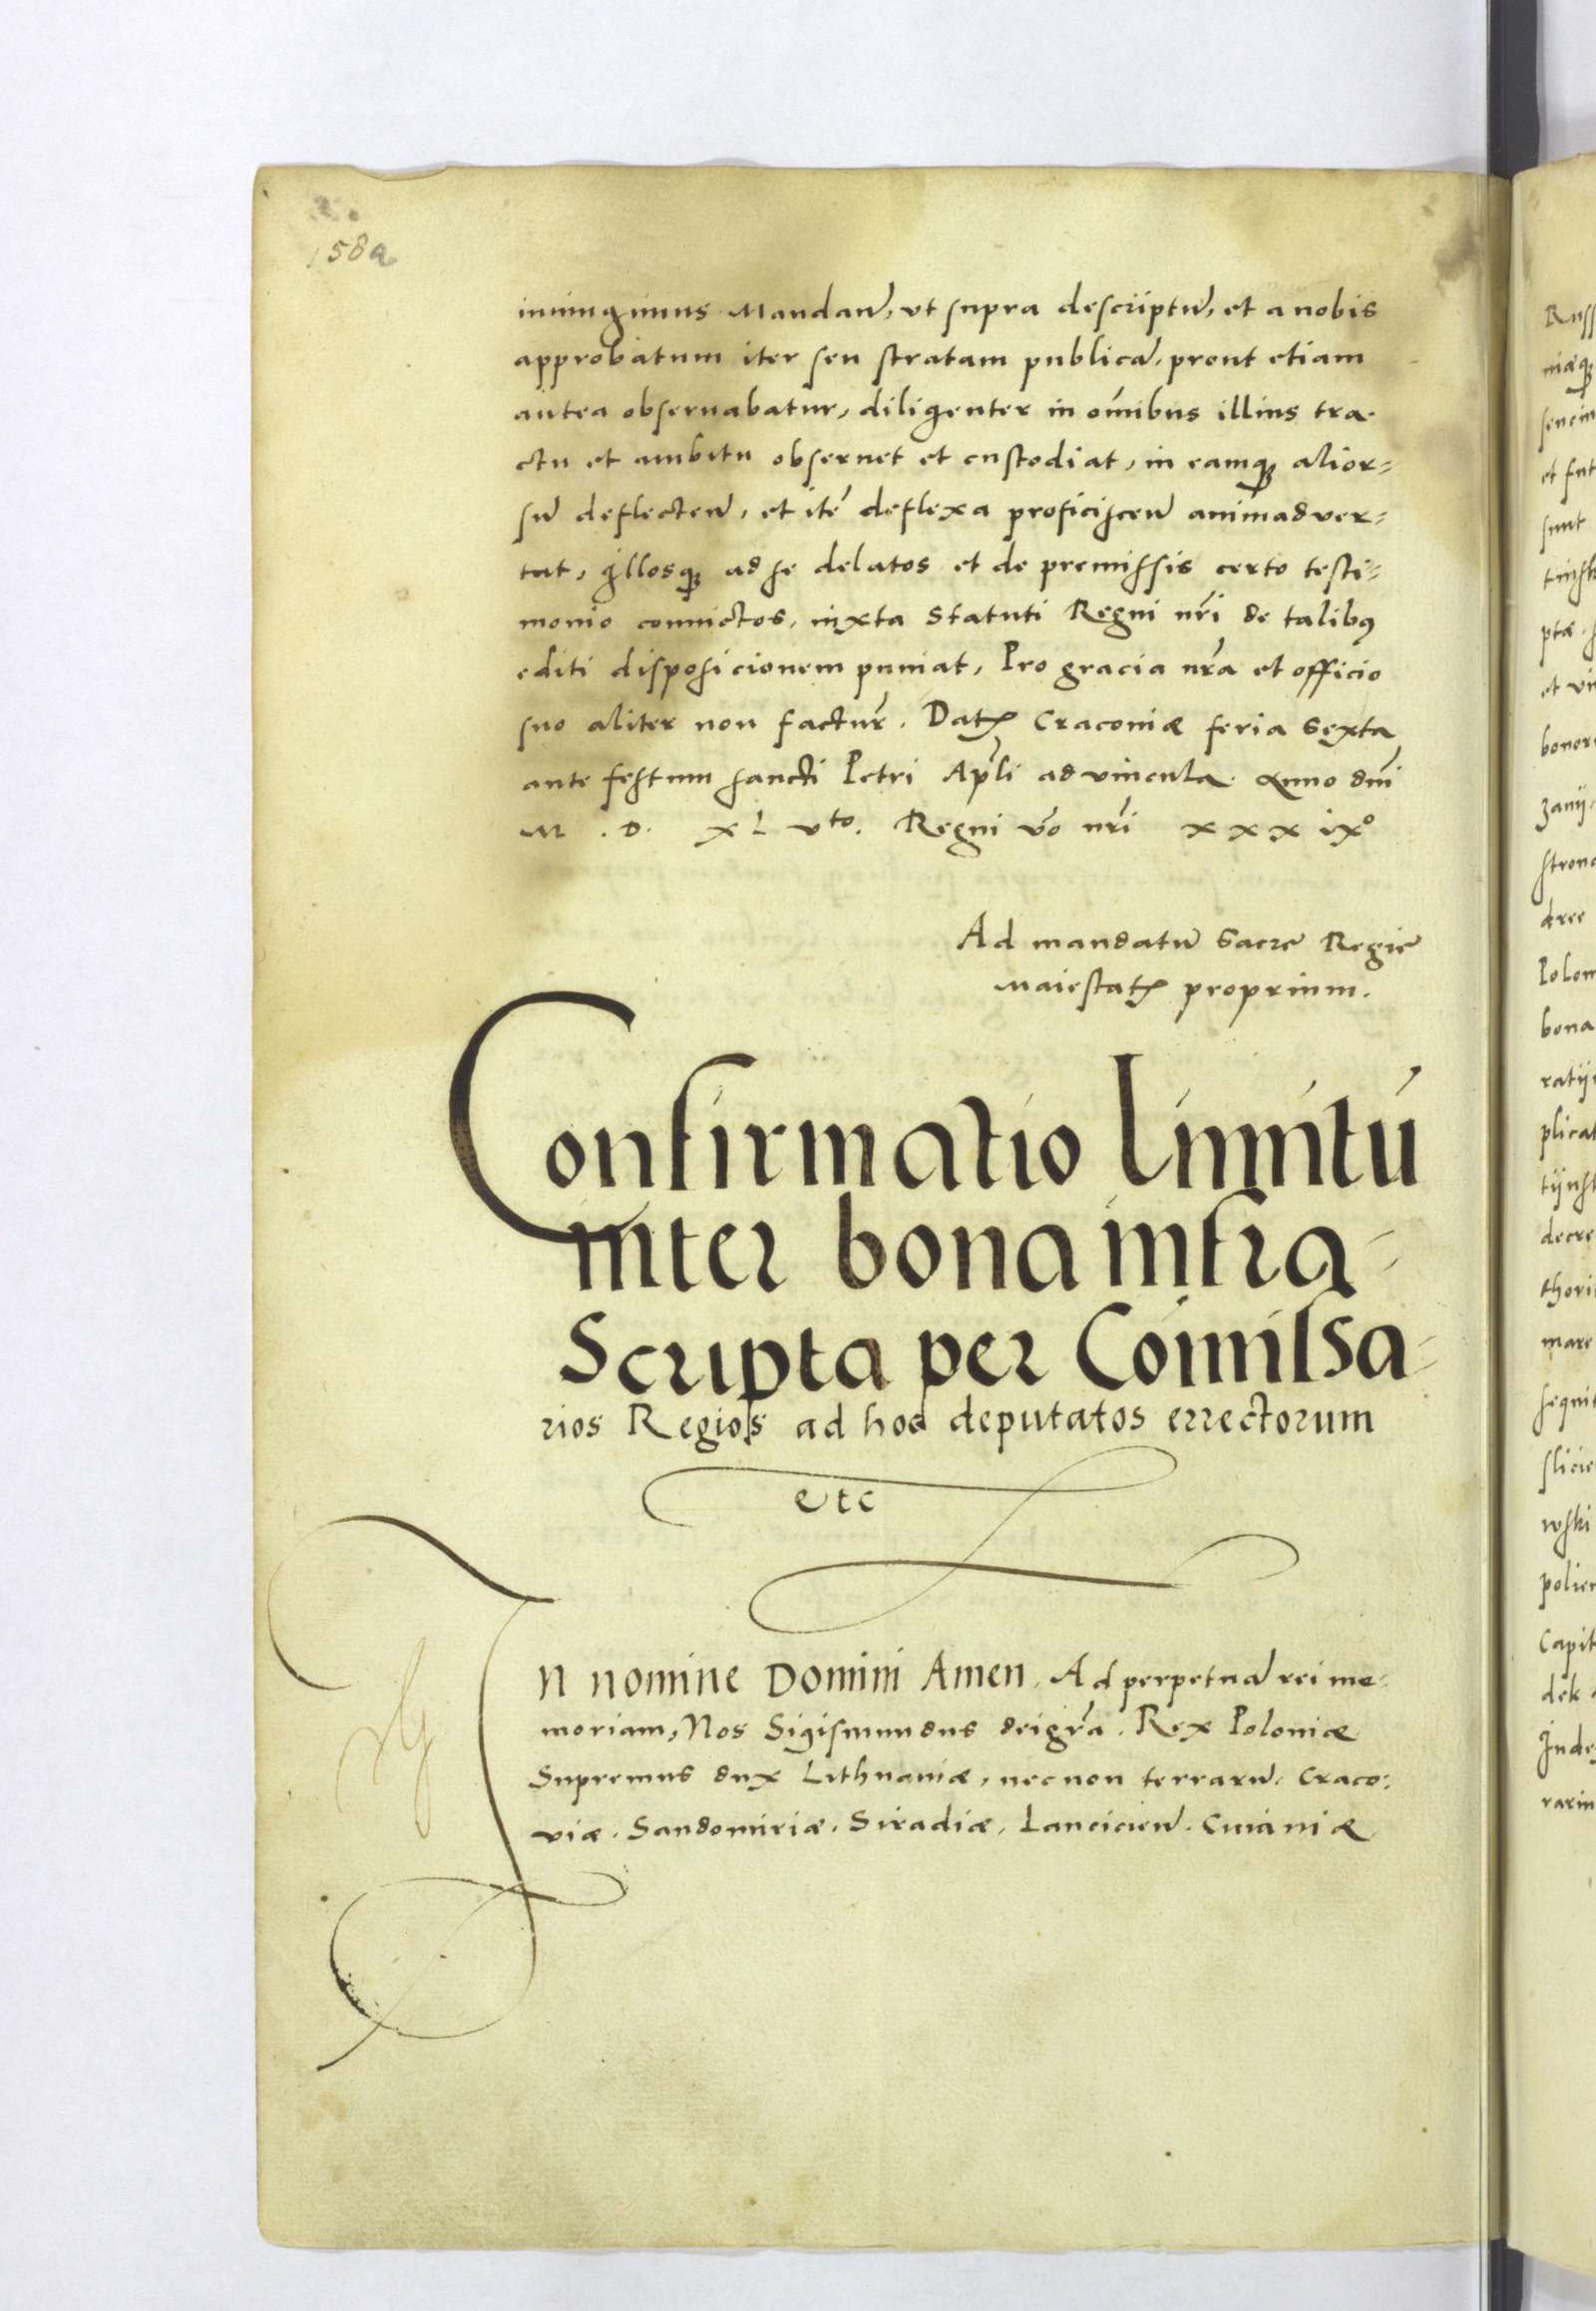 158a
iniungimus Mandan̄, vt supra descriptū, et a nobis
approbatum iter seu stratam publicā, prout etiam
antea obseruabatur, diligenter in om̄ibus illius tra-
ctu et ambitu obseruet et custodiat, in eamq̨ alior-
sū deflecteñ, et itē deflexa proficisceñ animadver-
tat, illosq̨ ad se delatos et de premissis certo testi-
monio conuictos, iuxta Statuti Regni nr̄i de talibꝰ
editi disposicionem puniat, Pro gracia nr̄a et officio
suo aliter non factur̄. Datꝭ Cracouiæ feria Sexta
ante festum sancti Petri Apl̄i ad vincula Anno dn̄i
M . D . XL vto. Regni v̄o nr̄i xxxixº
Ad mandatū Sacrę Regię
Maiestatꝭ proprium.
Confirmatio limitū
inter bona infra-
Scripta per Com̄issa-
rios Regios ad hoc deputatos errectorum
etc
IN nomine Domini Amen, Ad perpetuā rei me-
moriam, Nos Sigismundus dei gr̄a. Rex Poloniæ
Supremus dux Lithuaniæ, necnon terrarū. Craco-
viæ. Sandomiriæ. Siradiæ, Lancicieñ. Cuiauiæ